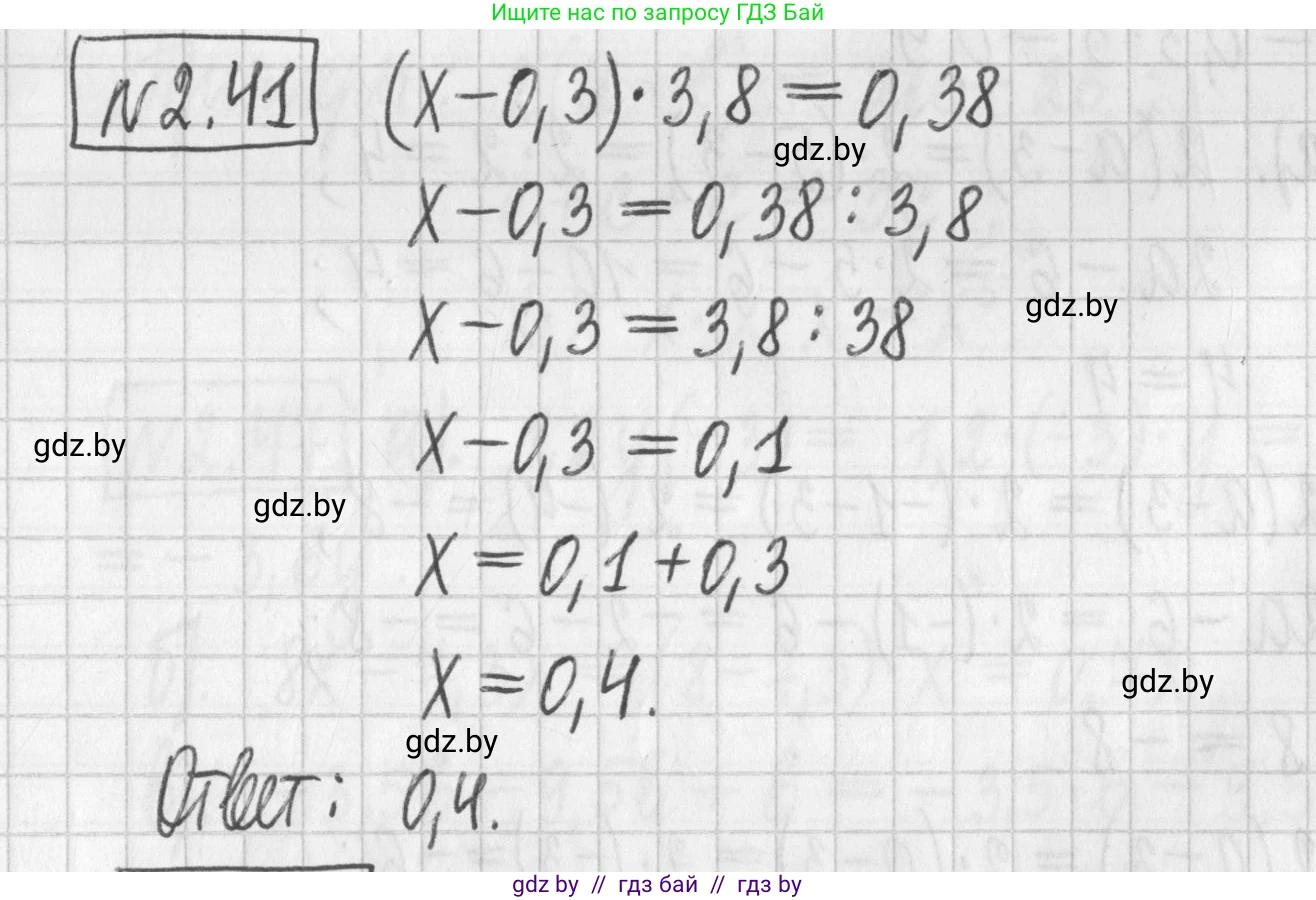 Ищите нас по запросу ГДЗ Бай
N 2.41 (x-0,3)·3,8=0,38
gdz.by
x-0,3=0,38:3,8
x-0,3=3,8:38
gdz.by
x-0,3=0,1
gdz.by
gdz.by
x=0,1+0,3
x=0,4.
gdz.by
gdz.by
Ответ: 0,4.
gdz by // гдз бай // гдз by